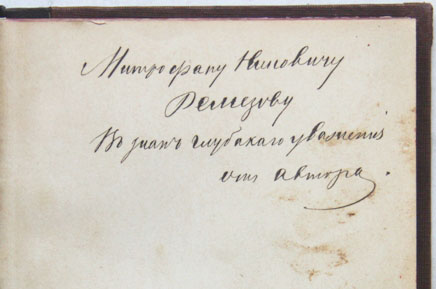 Митрофану Ниловичу
Ремезову
Въ знакъ глубокаго уваженія
отъ автора.